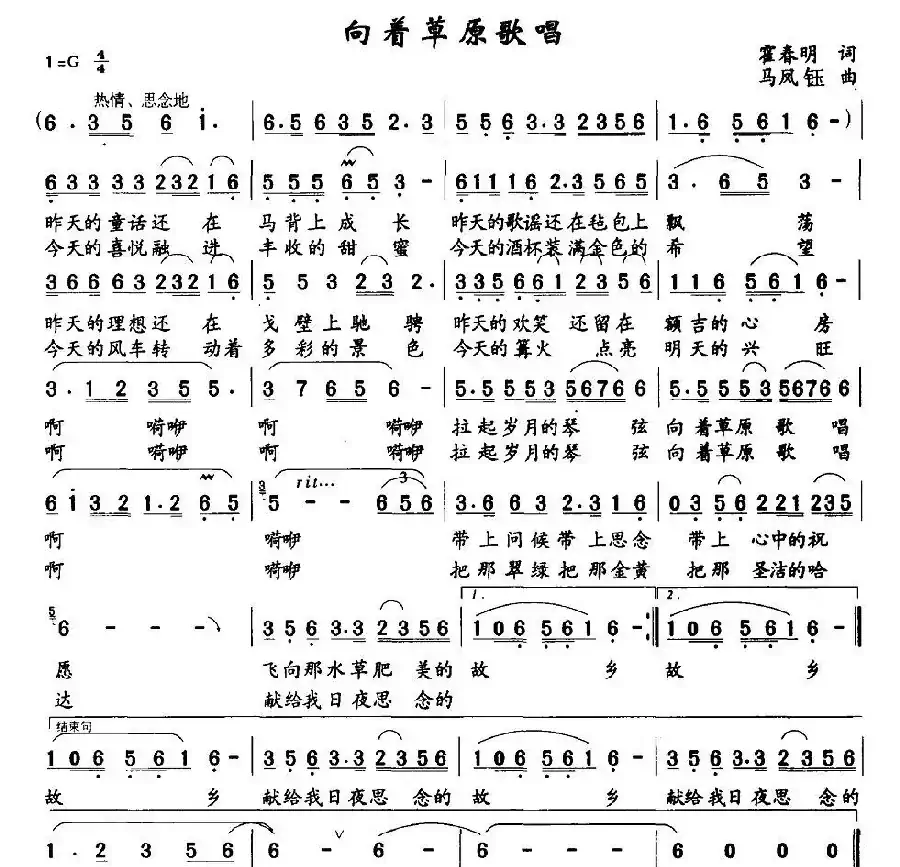 向着草原歌唱
1=G 4/4
霍春明 词
马凤钰 曲
热情、思念地
(6. 3 5 6 i. | 6.5 6 3 5 2.3 | 5 5 6 3.3 2 3 5 6 | 1.6 5 6 1 6 -)
6 3 3 3 3 2 3 2 1 6 | 5 5 5 6 5 3 - | 6 1 1 1 6 2.3 5 6 5 | 3. 6 5 3 -
昨天的童话还在 马背上成长 昨天的歌谣还在毡包上 飘荡
今天的喜悦融进 丰收的甜蜜 今天的酒杯装满金色的 希望
3 6 6 6 6 3 2 3 2 1 6 | 5 5 3 2 3 2. | 3 3 5 6 6 1 2 3 5 6 | 1 1 6 5 6 1 6 -
昨天的理想还在 戈壁上驰骋 昨天的欢笑还留在 额吉的心房
今天的风车转动着 多彩的景色 今天的篝火点亮 明天的兴旺
3. 1 2 3 5 5. | 3 7 6 5 6 - | 5.5 5 5 3 5 6 7 6 6 | 5.5 5 5 3 5 6 7 6 6
啊 嗬咿 啊 嗬咿 拉起岁月的琴弦 向着草原歌唱
啊 嗬咿 啊 嗬咿 拉起岁月的琴弦 向着草原歌唱
6 i 3 2 1.2 6 5 | 5 - - 6 5 6 | 3.6 6 3 2.3 1 6 | 0 3 5 6 2 2 1 2 3 5
rit... 3
啊 嗬咿 带上问候带上思念 带上心中的祝
啊 嗬咿 把那翠绿把那金黄 把那圣洁的哈
6 - - - | 3 5 6 3.3 2 3 5 6 | 1 0 6 5 6 1 6 - :| 1 0 6 5 6 1 6 -
1. 2.
愿 飞向那水草肥美的 故乡 故乡
达 献给我日夜思念的
结束句
1 0 6 5 6 1 6 - | 3 5 6 3.3 2 3 5 6 | 1 0 6 5 6 1 6 - | 3 5 6 3.3 2 3 5 6
故乡 献给我日夜思念的 故乡 献给我日夜思念的
1. 2 3 5 6 | 6 - - 6 | 6 - - - | 6 0 0 0